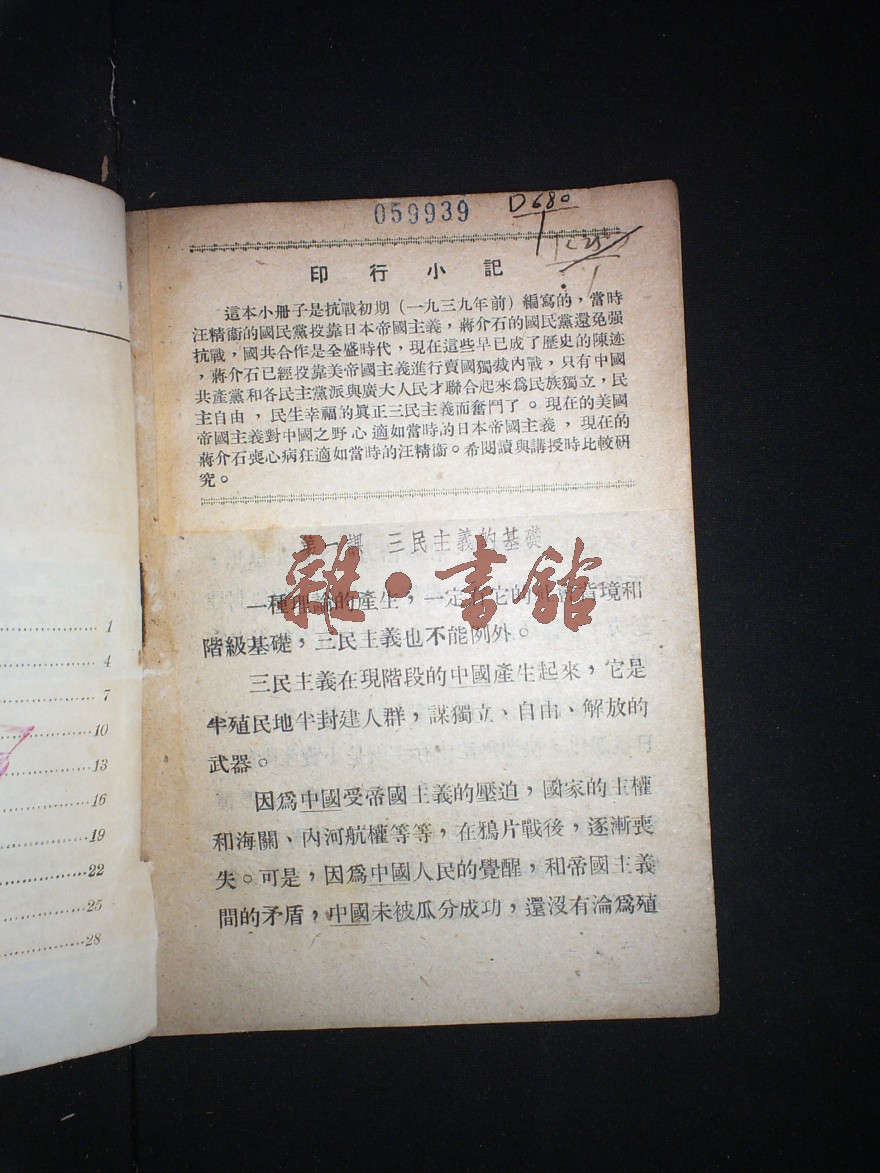 059939
D680
印行小記
這本小册子是抗戰初期(一九三九年前)編寫的,當時
汪精衞的國民黨投靠日本帝國主義,蔣介石的國民黨還免强
抗戰,國共合作是全盛時代,現在這些早已成了歷史的陳迹
,蔣介石已經投靠美帝國主義進行賣國獨裁內戰,只有中國
共產黨和各民主黨派與廣大人民才聯合起來爲民族獨立,民
主自由,民生幸福的眞正三民主義而奮鬥了。現在的美國
帝國主義對中國之野心適如當時的日本帝國主義,現在的
蔣介石喪心病狂適如當時的汪精衞。希閱讀與講授時比較硏
究。
第一課 三民主義的基礎
雜·書館
一種理論的產生,一定有它的背境和
階級基礎,三民主義也不能例外。
三民主義在現階段的中國產生起來,它是
半殖民地半封建人群,謀獨立、自由、解放的
武器。
因爲中國受帝國主義的壓迫,國家的主權
和海關、內河航權等等,在鴉片戰後,逐漸喪
失。可是,因爲中國人民的覺醒,和帝國主義
間的矛盾,中國未被瓜分成功,還沒有淪爲殖
1
4
7
10
13
16
19
22
25
28